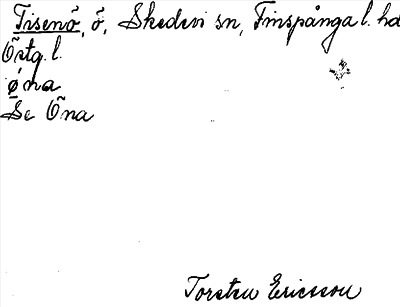 Tisenö, ö, Skedevi sn, Finspånga l. hd
Östg. l.
ø̱na
Se Öna
Torsten Ericsson